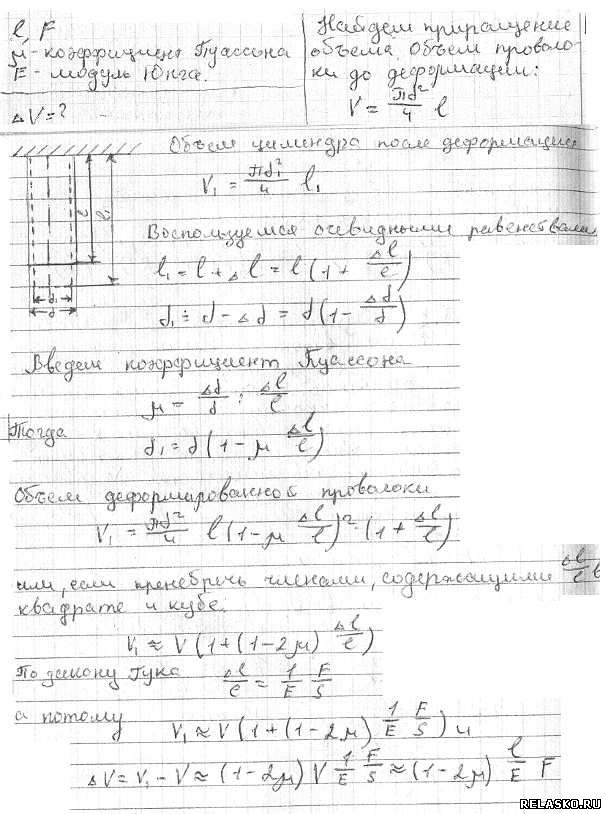 l, F
μ - коэффициент Пуассона
E - модуль Юнга.
ΔV = ?
Найдем приращение
объема. Объем проволо-
ки до деформации:
V = πd²/4 l
Объем цилиндра после деформации
V₁ = πd₁²/4 l₁
Воспользуемся очевидными равенствами
l₁ = l + Δl = l(1 + Δl/l)
d₁ = d - Δd = d(1 - Δd/d)
d₁
d
Введем коэффициент Пуассона
μ = Δd/d : Δl/l
Тогда
d₁ = d(1 - μ Δl/l)
Объем деформированной проволоки
V₁ = πd²/4 l(1 - μ Δl/l)² · (1 + Δl/l)
или, если пренебречь членами, содержащими Δl/l в
квадрате и кубе.
V₁ ≈ V(1 + (1 - 2μ) Δl/l)
По закону Гука Δl/l = 1/E F/S
а потому V₁ ≈ V(1 + (1 - 2μ) 1/E F/S) и
ΔV = V₁ - V ≈ (1 - 2μ) V 1/E F/S ≈ (1 - 2μ) l/E F
RELASKO.RU